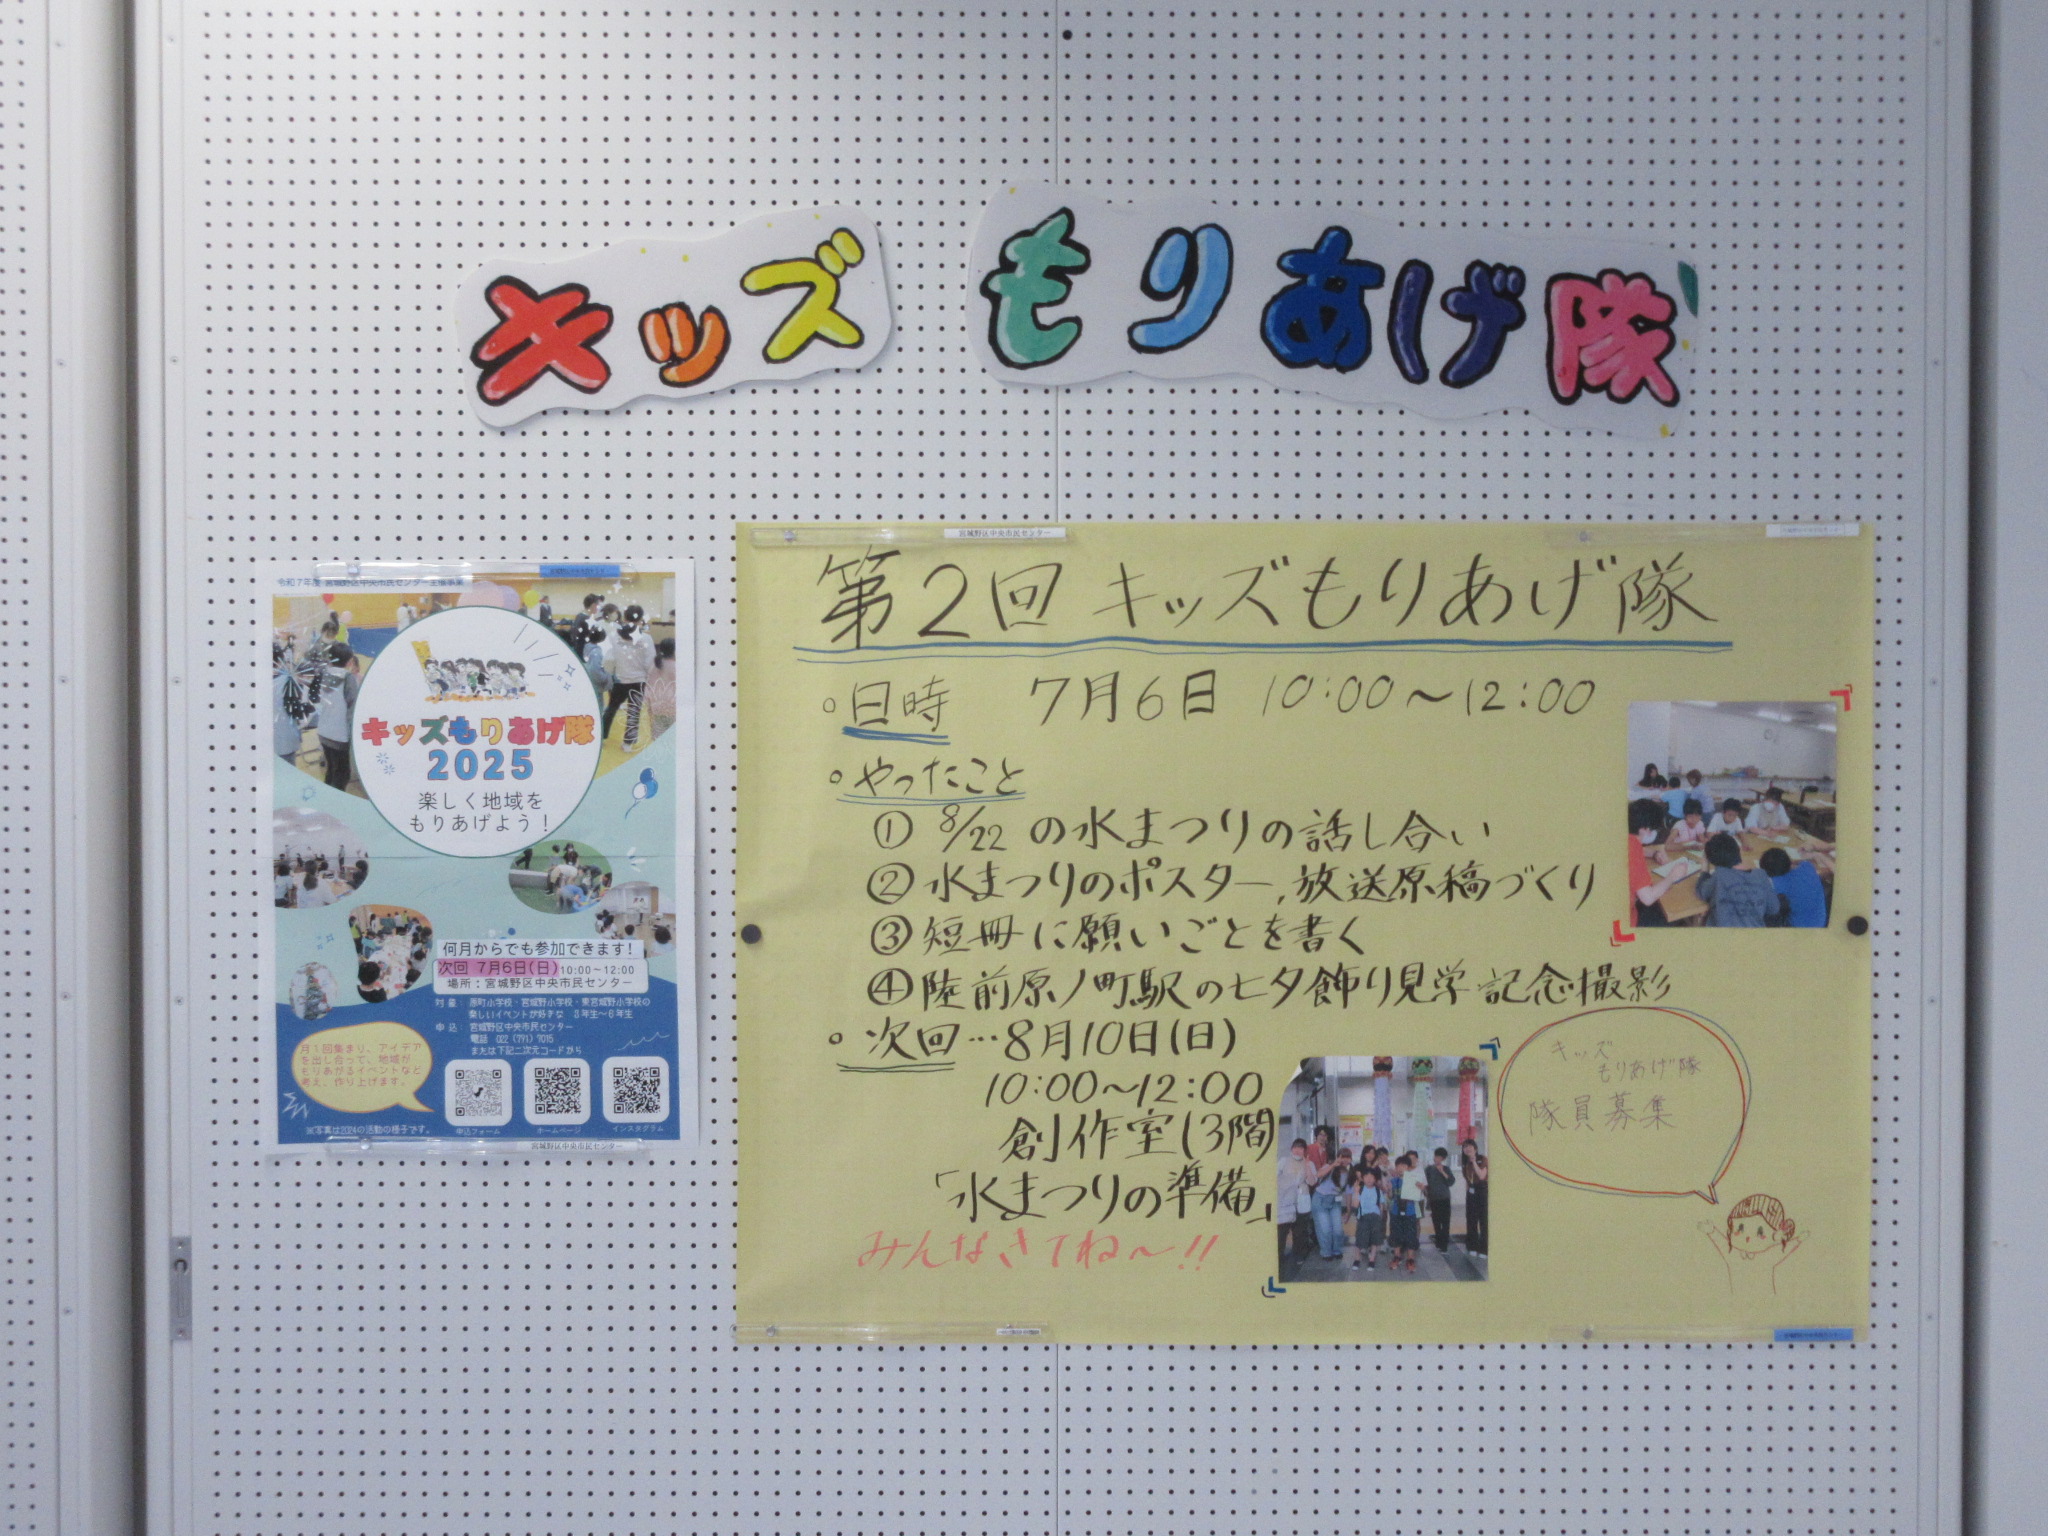 キッズ もりあげ隊
令和7年度 宮城野区中央市民センター主催事業
キッズもりあげ隊
2025
楽しく地域を
もりあげよう！
何月からでも参加できます!
次回 7月6日(日) 10:00～12:00
場所：宮城野区中央市民センター
対象：原町小学校・宮城野小学校・東宮城野小学校の
楽しいイベントが好きな 3年生～6年生
申込：宮城野区中央市民センター
電話 022 (791) 7015
または下記二次元コードから
月1回集まり、アイデア
を出し合って、地域が
もりあがるイベントなど
考え、作り上げます。
※写真は2024の活動の様子です。
申込フォーム
ホームページ
インスタグラム
宮城野区中央市民センター
宮城野区中央市民センター
第2回 キッズもりあげ隊
。日時 7月6日 10:00～12:00
。やったこと
① 8/22 の水まつりの話し合い
② 水まつりのポスター,放送原稿づくり
③ 短冊に願いごとを書く
④ 陸前原ノ町駅の七夕飾り見学 記念撮影
。次回…8月10日(日)
10:00～12:00
創作室(3階)
「水まつりの準備」
みんなきてね～!!
キッズ
もりあげ隊
隊員募集